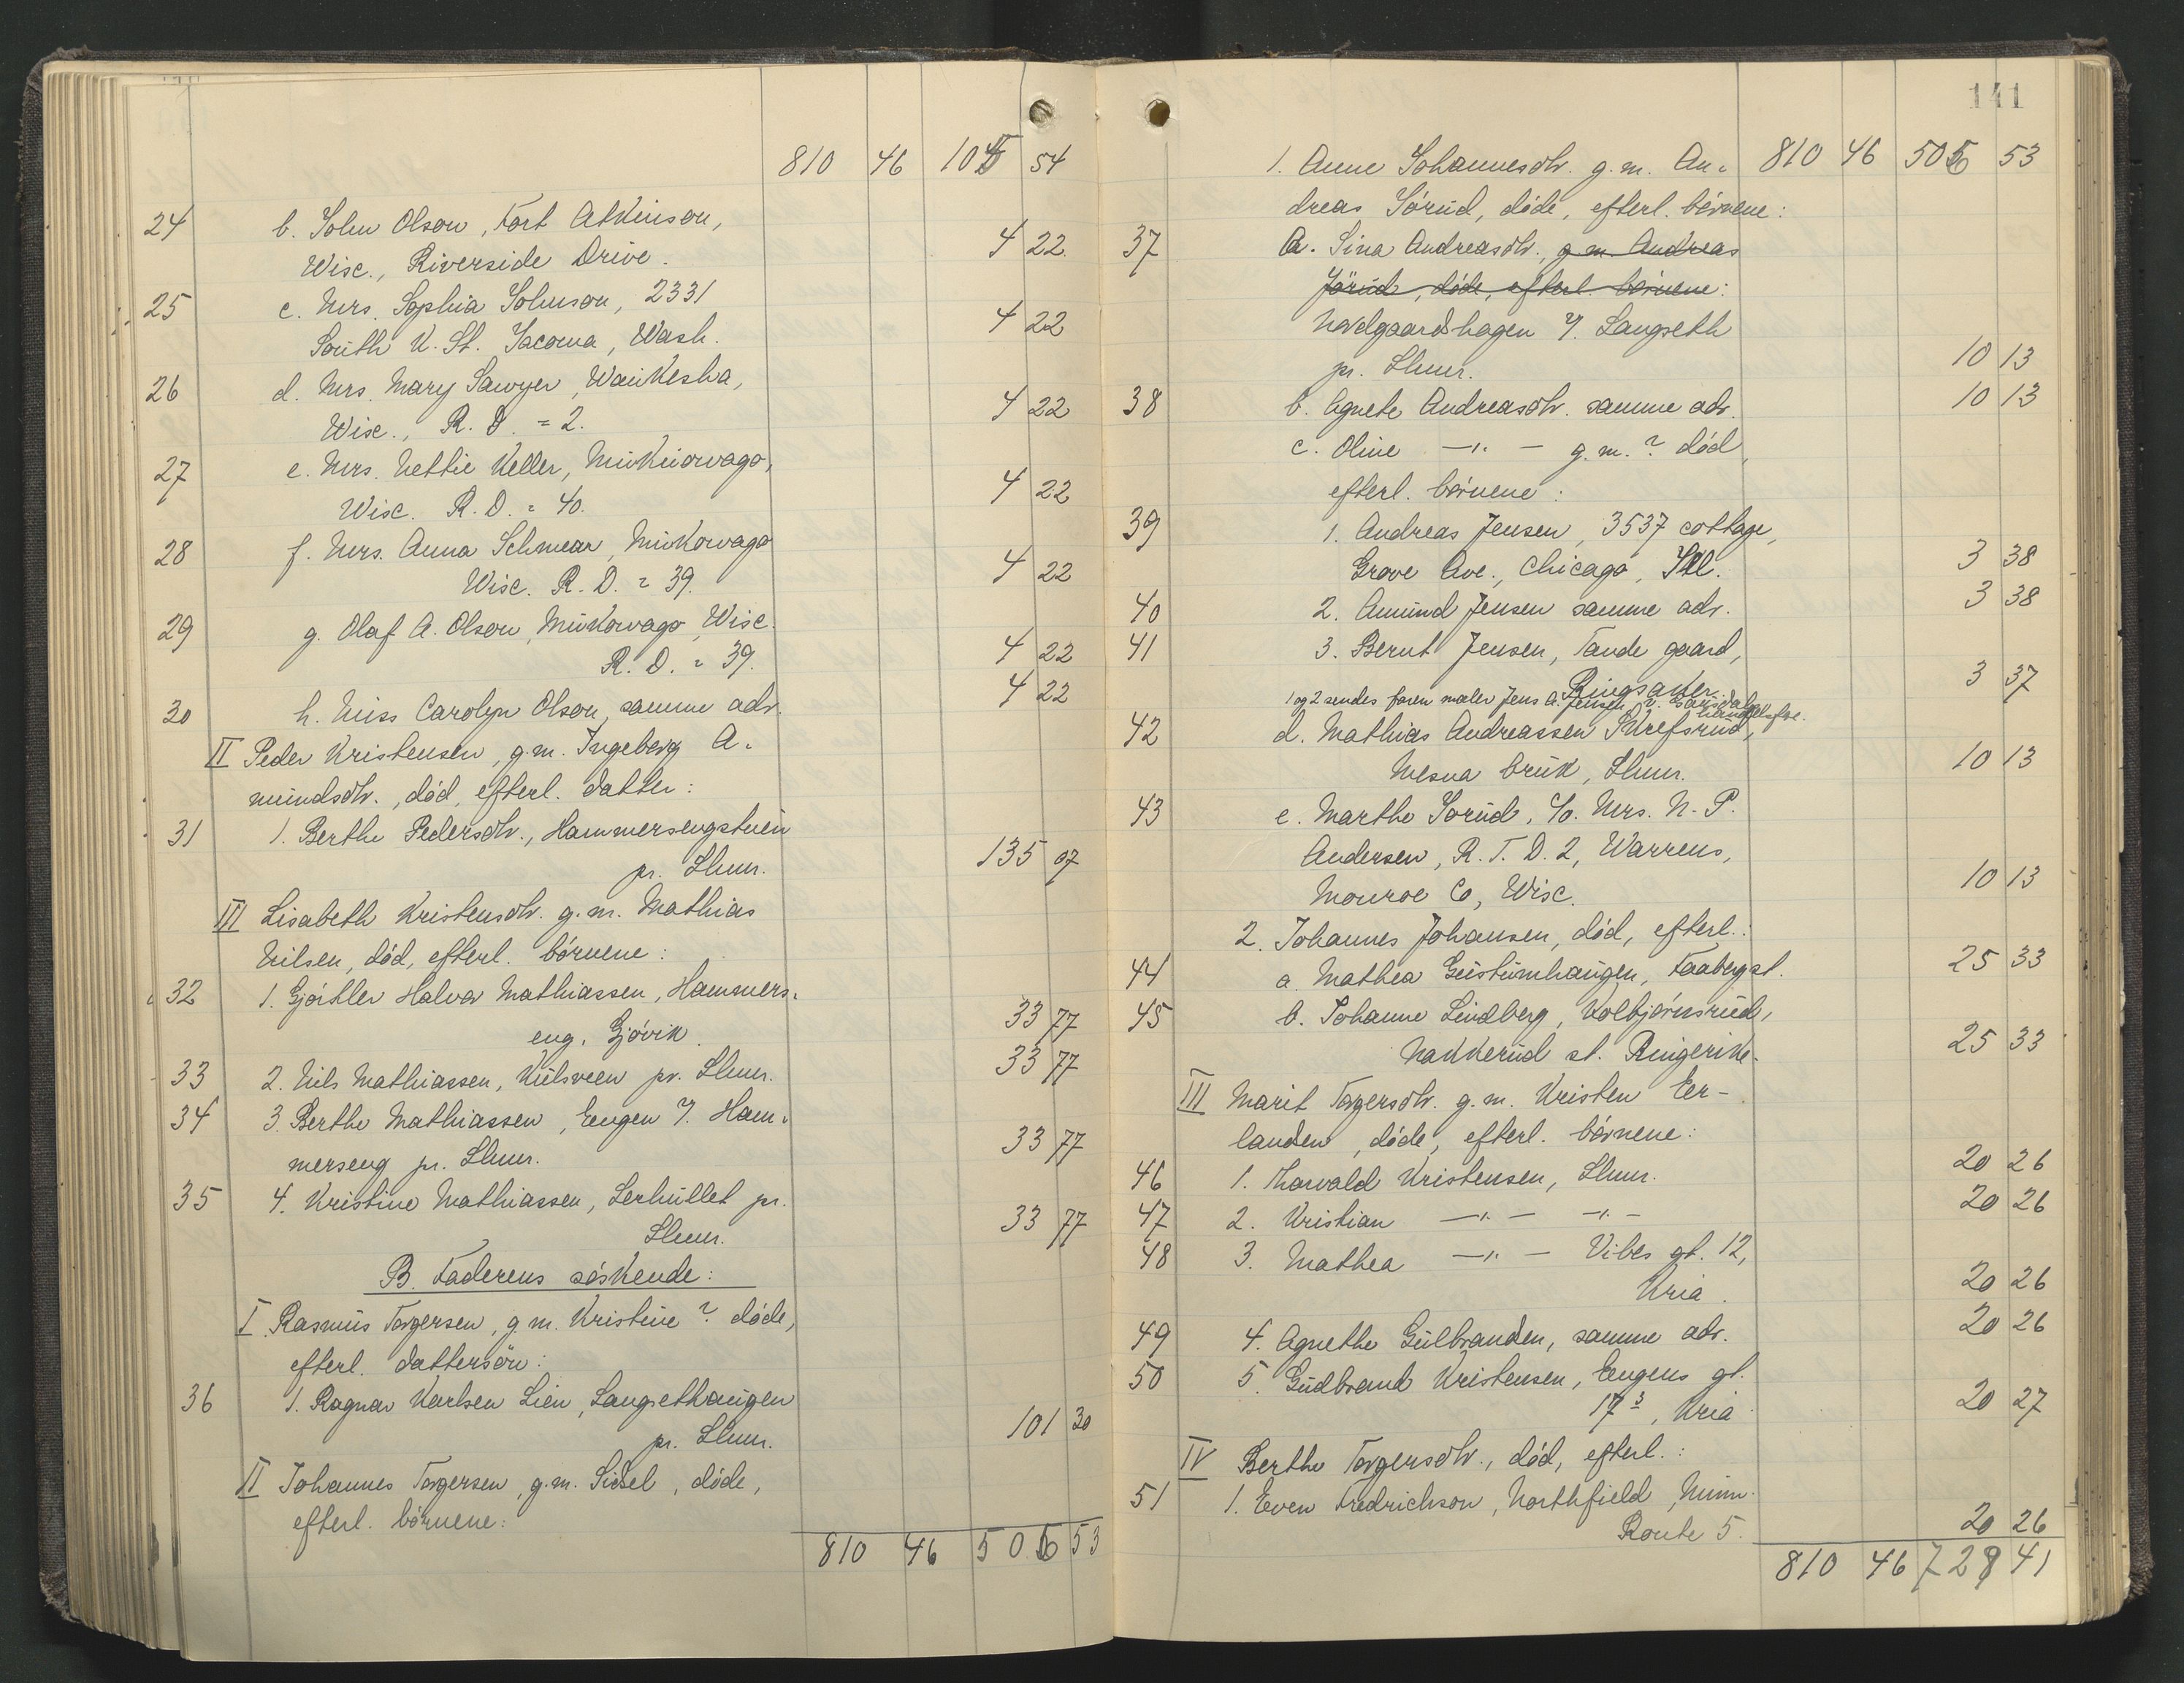 810 46 105 54
24 b. John Olson, Fort Atkinson,
Wisc., Riverside Drive. 4 22
25 c. Mrs. Sophia Johnson, 2331
South K. St. Tacoma, Wash. 4 22
26 d. Mrs. Mary Sawyer, Waukesha,
Wisc., R. D. = 2. 4 22
27 e. Mrs. Nettie Keller, Mukwowago,
Wisc. R. D. = 40. 4 22
28 f. Mrs. Anna Schmear, Mukowago
Wisc. R. D. = 39. 4 22
29 g. Olaf A. Olson, Mukowago Wisc.
R. D. = 39. 4 22
30 h. Miss Carolyn Olson, samme adr. 4 22
II Peder Kristensen, g.m. Ingeborg A-
mundsdtr., död, efterl. datter:
31 1. Berthe Pedersdtr., Hammersengstuen
pr. Lhmr. 135 07
III Lisabeth Kristensdtr. g.m. Mathias
Nilsen, död, efterl. börnene:
32 1. Gjörtler Halvor Mathiassen, Hammers-
eng, Gjövik. 33 77
33 2. Nils Mathiassen, Kulsveen pr. Lhmr. 33 77
34 3. Berthe Mathiassen, Eengen /. Ham-
merseng pr. Lhmr. 33 77
35 4. Kristine Mathiassen, Lerhullet pr.
Lhmr. 33 77
B. Faderens söskende:
I Rasmus Torgersen, g.m. Kristine ? döde,
efterl. dattersön:
36 1. Ragnar Karlsen Lien, Langsethaugen
pr. Lhmr. 101 30
II Johannes Torgersen, g.m. Sidsel, döde,
efterl. börnene:
810 46 506 53
141
810 46 506 53
1. Anne Johannesdtr. g.m. An-
dreas Jörud, döde, efterl. börnene:
37 a. Sina Andreasdtr., g.m. Andreas
Jörud, döde, efterl. börnene:
Nordgaardshagen /. Langseth
pr. Lhmr. 10 13
38 b. Agnete Andreasdtr. samme adr. 10 13
c. Oline —"— g.m. ? död,
efterl. börnene:
39 1. Andreas Jensen, 3537 cottage,
Grove Ave., Chicago, Ill. 3 38
40 2. Amund Jensen samme adr. 3 38
41 3. Bernt Jensen, Tande gaard,
Ringsaker. 3 37
1 og 2 sendes faren maler Jens A. Jensen,
42 d. Mathias Andreassen Skrefsrud,
Mesna bruk, Lhmr. 10 13
43 e. Marthe Jorud, c/o. Mrs. N. P.
Andersen, R. F. D. 2, Warrens,
Monroe Co, Wisc. 10 13
2. Johannes Johansen, död, efterl.:
44 a. Mathea Gustumhaugen, Faaberg st. 25 33
45 b. Johanne Lindberg, Kolbjörnsrud,
Nakkerud st. Ringerike. 25 33
III Marit Torgersdtr. g.m. Kristen Eer-
landen, döde, efterl. börnene:
46 1. Thorvald Kristensen, Lhmr. 20 26
47 2. Kristian —"— —"— 20 26
48 3. Mathea —"— Vibes gt. 12,
Kria. 20 26
49 4. Agnethe Gulbranden, samme adr. 20 26
50 5. Gudbrand Kristensen, Eugens gt.
17 3, Kria. 20 27
IV Berthe Torgersdtr., död, efterl.:
51 1. Even Fredrichson, Northfield, Minn.
Route 5. 20 26
810 46 729 41